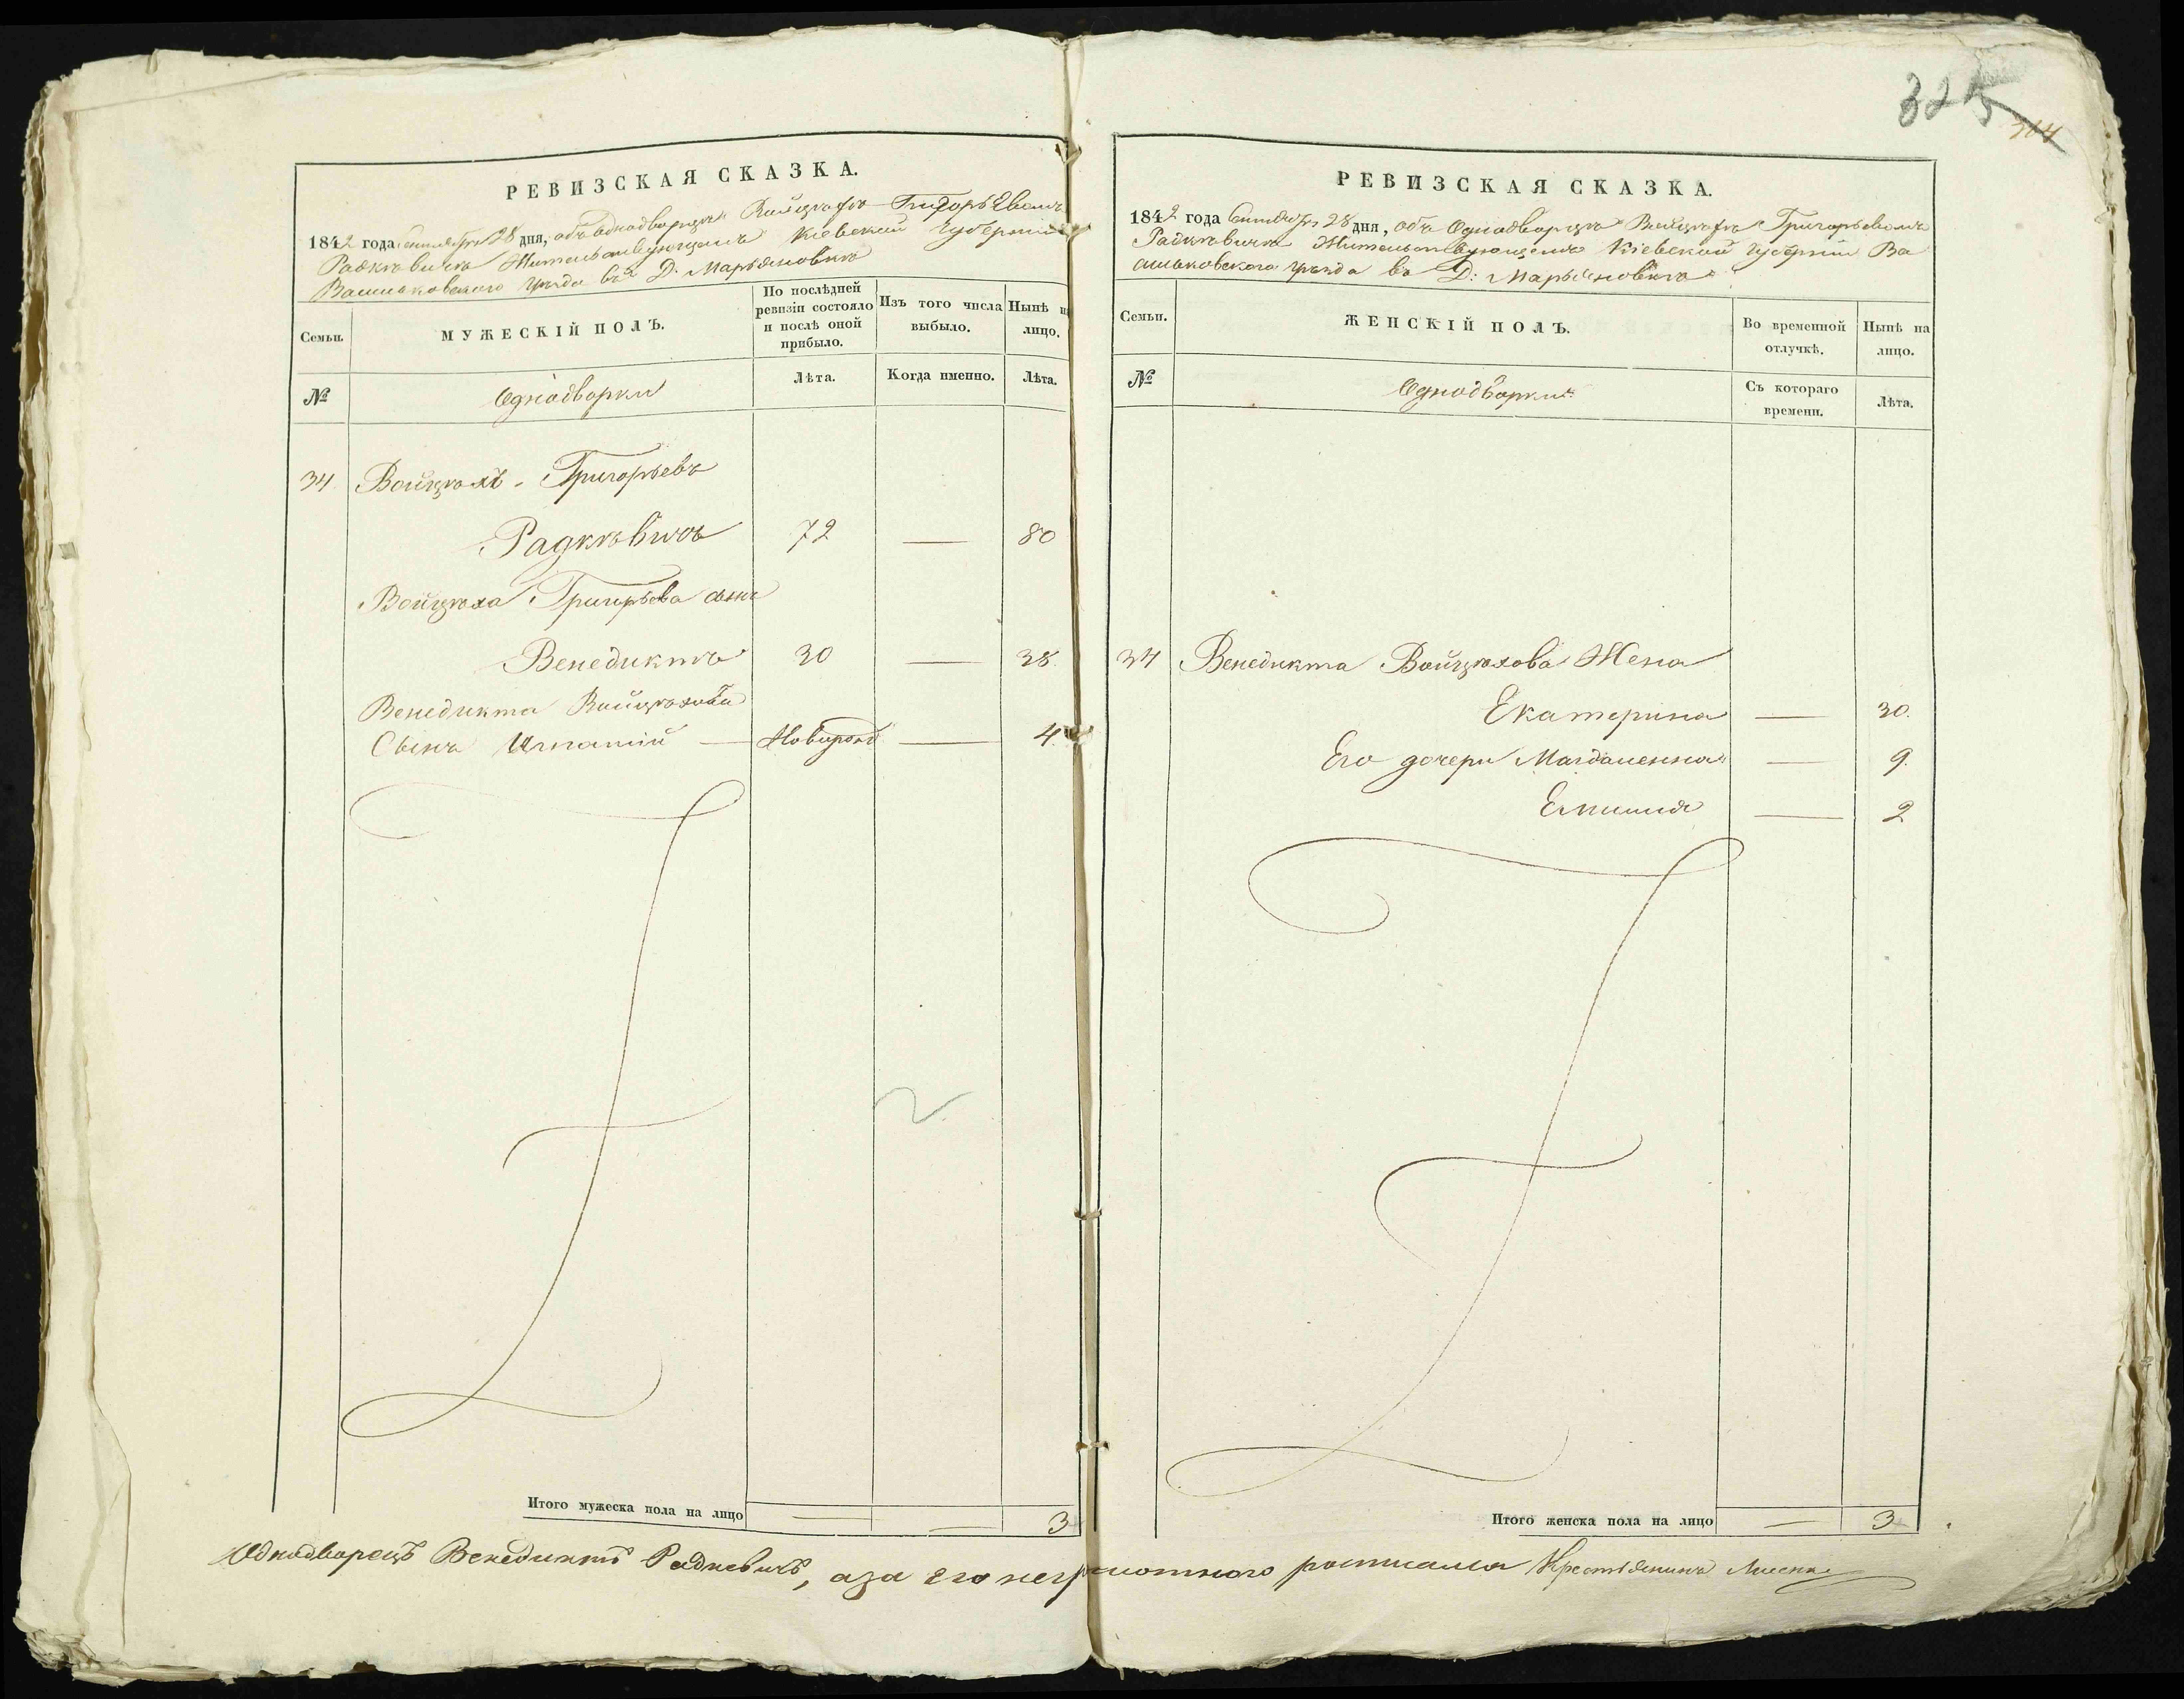 325
314
РЕВИЗСКАЯ СКАЗКА.
1842 года Сентября 28 дня, объ Однодворцѣ Войцѣхѣ Григорьевомъ
Радкѣвичѣ Жительствующемъ Кіевской Губерніи
Васильковскаго уѣзда въ Д. Марьяновкѣ
Семьи.
МУЖЕСКІЙ ПОЛЪ.
По послѣдней ревизіи состояло и послѣ оной прибыло.
Изъ того числа выбыло.
Нынѣ на лицо.
№
Однодворки
Лѣта.
Когда именно.
Лѣта.
34 Войцѣхъ Григорьевъ
Радкѣвичъ 72 — 80
Войцѣха Григорьева сынъ
Венедиктъ 30 — 38.
Венедикта Войцѣхова
Сынъ Игнатій — Новорожд — 4.
Итого мужеска пола на лицо — — 3
РЕВИЗСКАЯ СКАЗКА.
1842 года Сентября 28 дня, объ Однодворцѣ Войцѣхѣ Григорьевомъ
Радкѣвичѣ Жительствующемъ Кіевской Губерніи Ва
сильковскаго уѣзда въ Д: Марьяновкѣ
Семьи.
ЖЕНСКІЙ ПОЛЪ.
Во временной отлучкѣ.
Нынѣ на лицо.
№
Однодворки
Съ котораго времени.
Лѣта.
34 Венедикта Войцѣхова Жена
Екатерина — 30.
Его дочери Магдаленна — 9.
Емилия — 2
Итого женска пола на лицо — 3
Однодворецъ Венедиктъ Радкевичъ, а за его неграмотного росписался Крестьянинъ